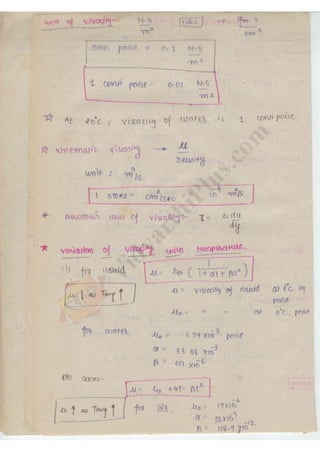 unit of viscosity - N-S/m² [M.K.S] → dyn. S/cm²
one poise = 0.1 N-S/m²
1 centi poise = 0.01 N-S/m²
At 20°C, viscosity of water is 1 centi poise
kinematic viscosity → μ/Density
unit : m²/s
1 stoke = cm²/sec = 10⁻⁴ m²/s
* newtons law of viscosity: τ = μ du/dy
* variation of viscosity with temperature.
(i) for liquid μ = μ₀ (1/(1+αt+βt²))
μ↓ as Temp↑ μ = viscosity of liquid at t°C in
poise
μ₀ = " " at 0°C, poise
for water μ₀ = 1.79×10⁻³ poise
α = 33.68×10⁻³
β = 221×10⁻⁶
(ii) Gases
μ = μ₀ + αt - βt²
μ↑ as Temp↑ for air, μ₀ = 17×10⁻⁶
α = 56×10⁻⁹
β = 118.9×10⁻¹²